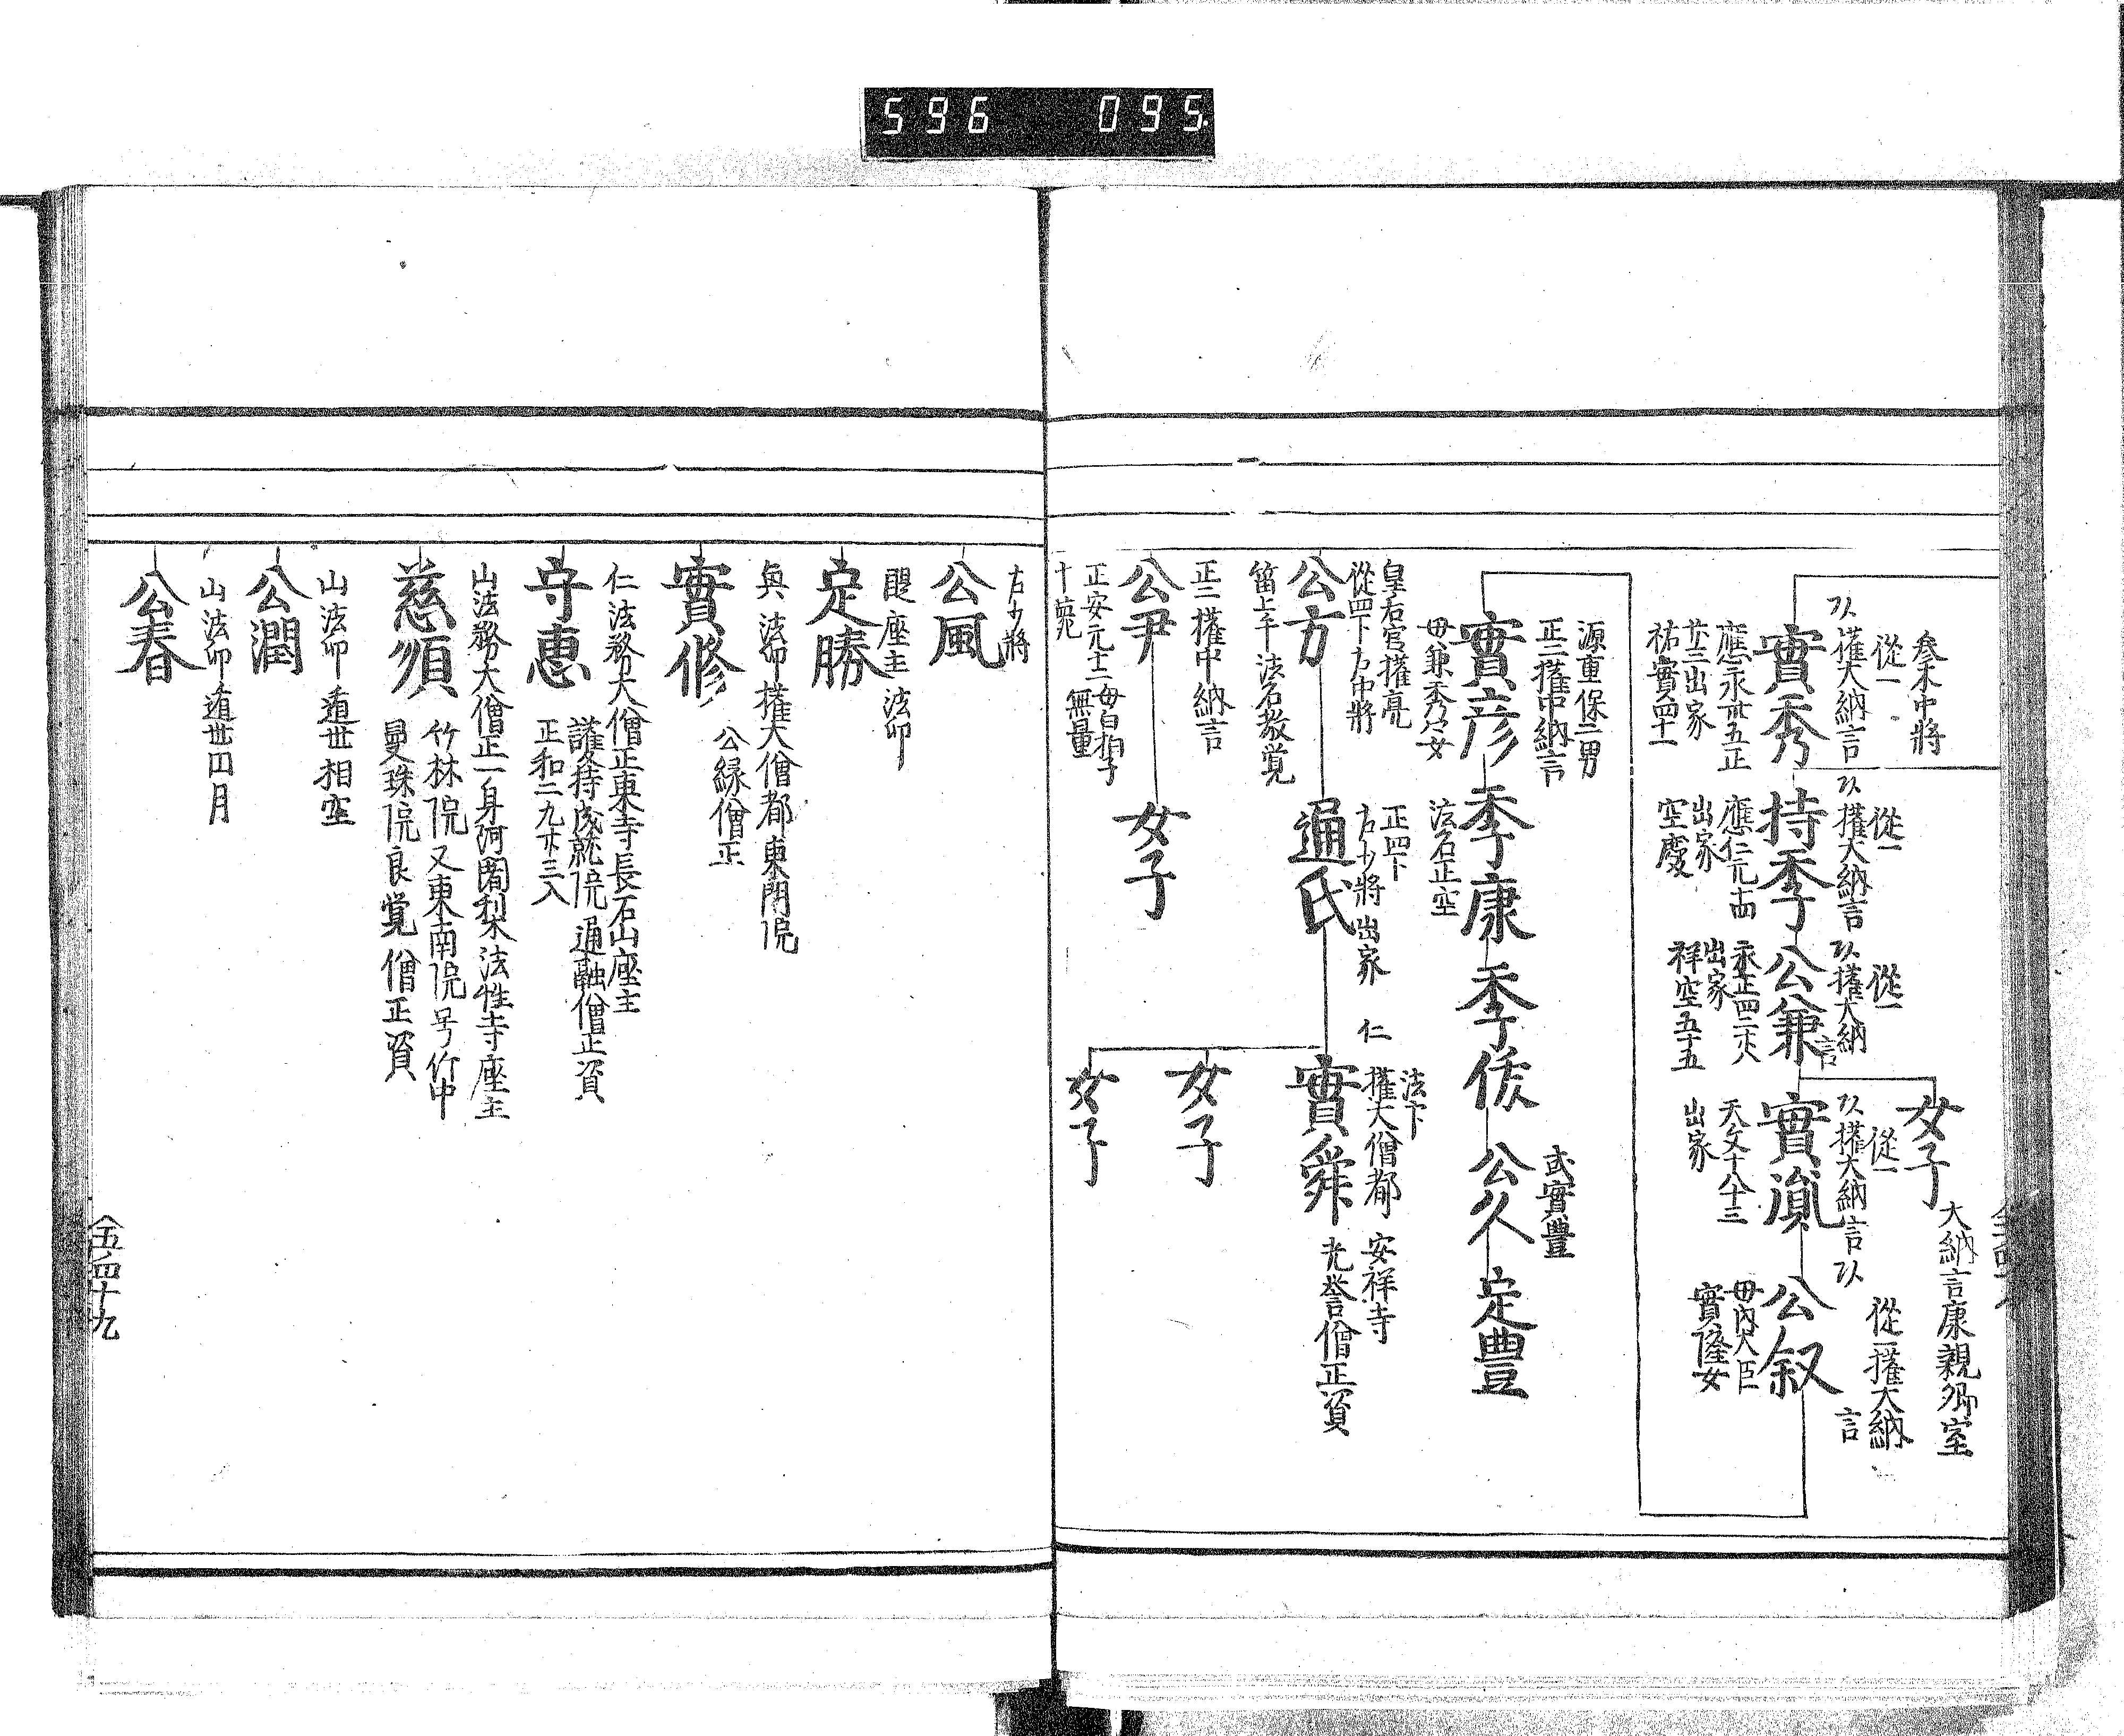 596 095
参木中将
從一
以権大納言
實秀
應永廿五正
廿三出家
祐實四十一
從一
以権大納言
持季
應仁元
出家
空慶
從一
以権大納言
公兼
永正四二六
出家
祥空五十五
女子
大納言康親卿室
從一
以権大納言
實胤
天文十八十三
出家
從一権大納言
公叙
母内大臣
實隆女
源重保二男
正二権中納言
實彦
母兼秀公女
季康
法名正空
季俟
公久
或實豊
定豊
皇后宮権亮
從四下右中将
公方
笛上手法名教覚
正四下
右少将出家
通氏
仁
法下
権大僧都 安祥寺
實舜
光誉僧正資
女子
女子
正二権中納言
公尹
正安元十二 母白拍子
十 無量
女子
右少将
公風
醍座主法印
定勝
法印権大僧都東門院
實修
公縁僧正
仁法務大僧正東寺長石山座主
守恵
護持成就院通融僧正資
正和二九廿三入
山法務大僧正一身阿闍梨法性寺座主
慈順
竹林院又東南院号竹中
曼珠院良覚僧正資
山法印遁世相空
公潤
山法印遁世四月
公春
五ノ四十九